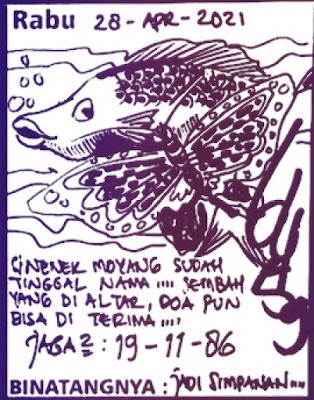 Rabu 28-APR-2021
CINENEK MOYANG SUDAH
TINGGAL NAMA .... SEMBAH
YANG DI ALTAR, DOA PUN
BISA DI TERIMA ....
JAGA2 : 19-11-86
BINATANGNYA : JADI SIMPANAN....